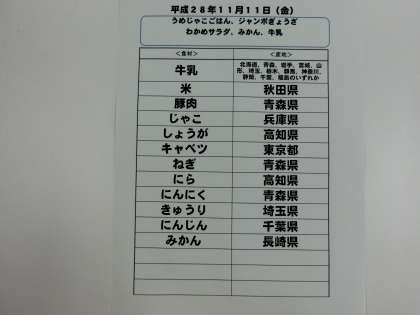 平成28年11月11日（金）
うめじゃこごはん、ジャンボぎょうざ
わかめサラダ、みかん、牛乳
＜食材＞ ＜産地＞
牛乳 北海道、青森、岩手、宮城、山形、埼玉、栃木、群馬、神奈川、静岡、千葉、福島のいずれか
米 秋田県
豚肉 青森県
じゃこ 兵庫県
しょうが 高知県
キャベツ 東京都
ねぎ 青森県
にら 高知県
にんにく 青森県
きゅうり 埼玉県
にんじん 千葉県
みかん 長崎県